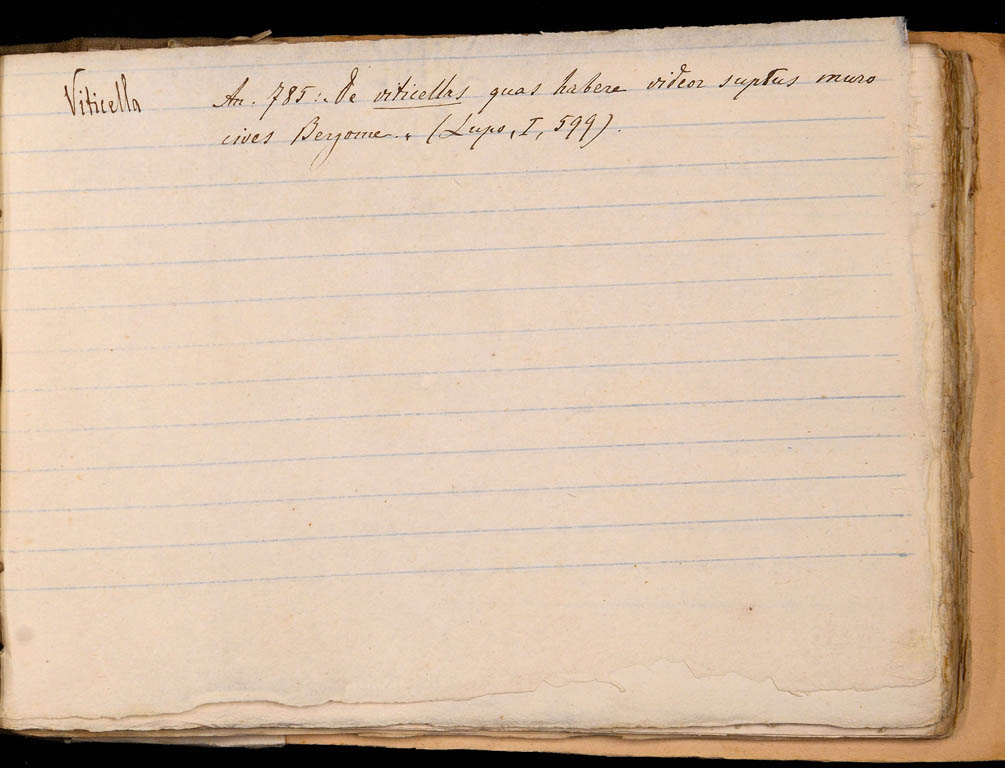 Viticella An. 785: „De viticellas quas habere videor suptus muro
cives Bergome „ (Lupo, I, 599).